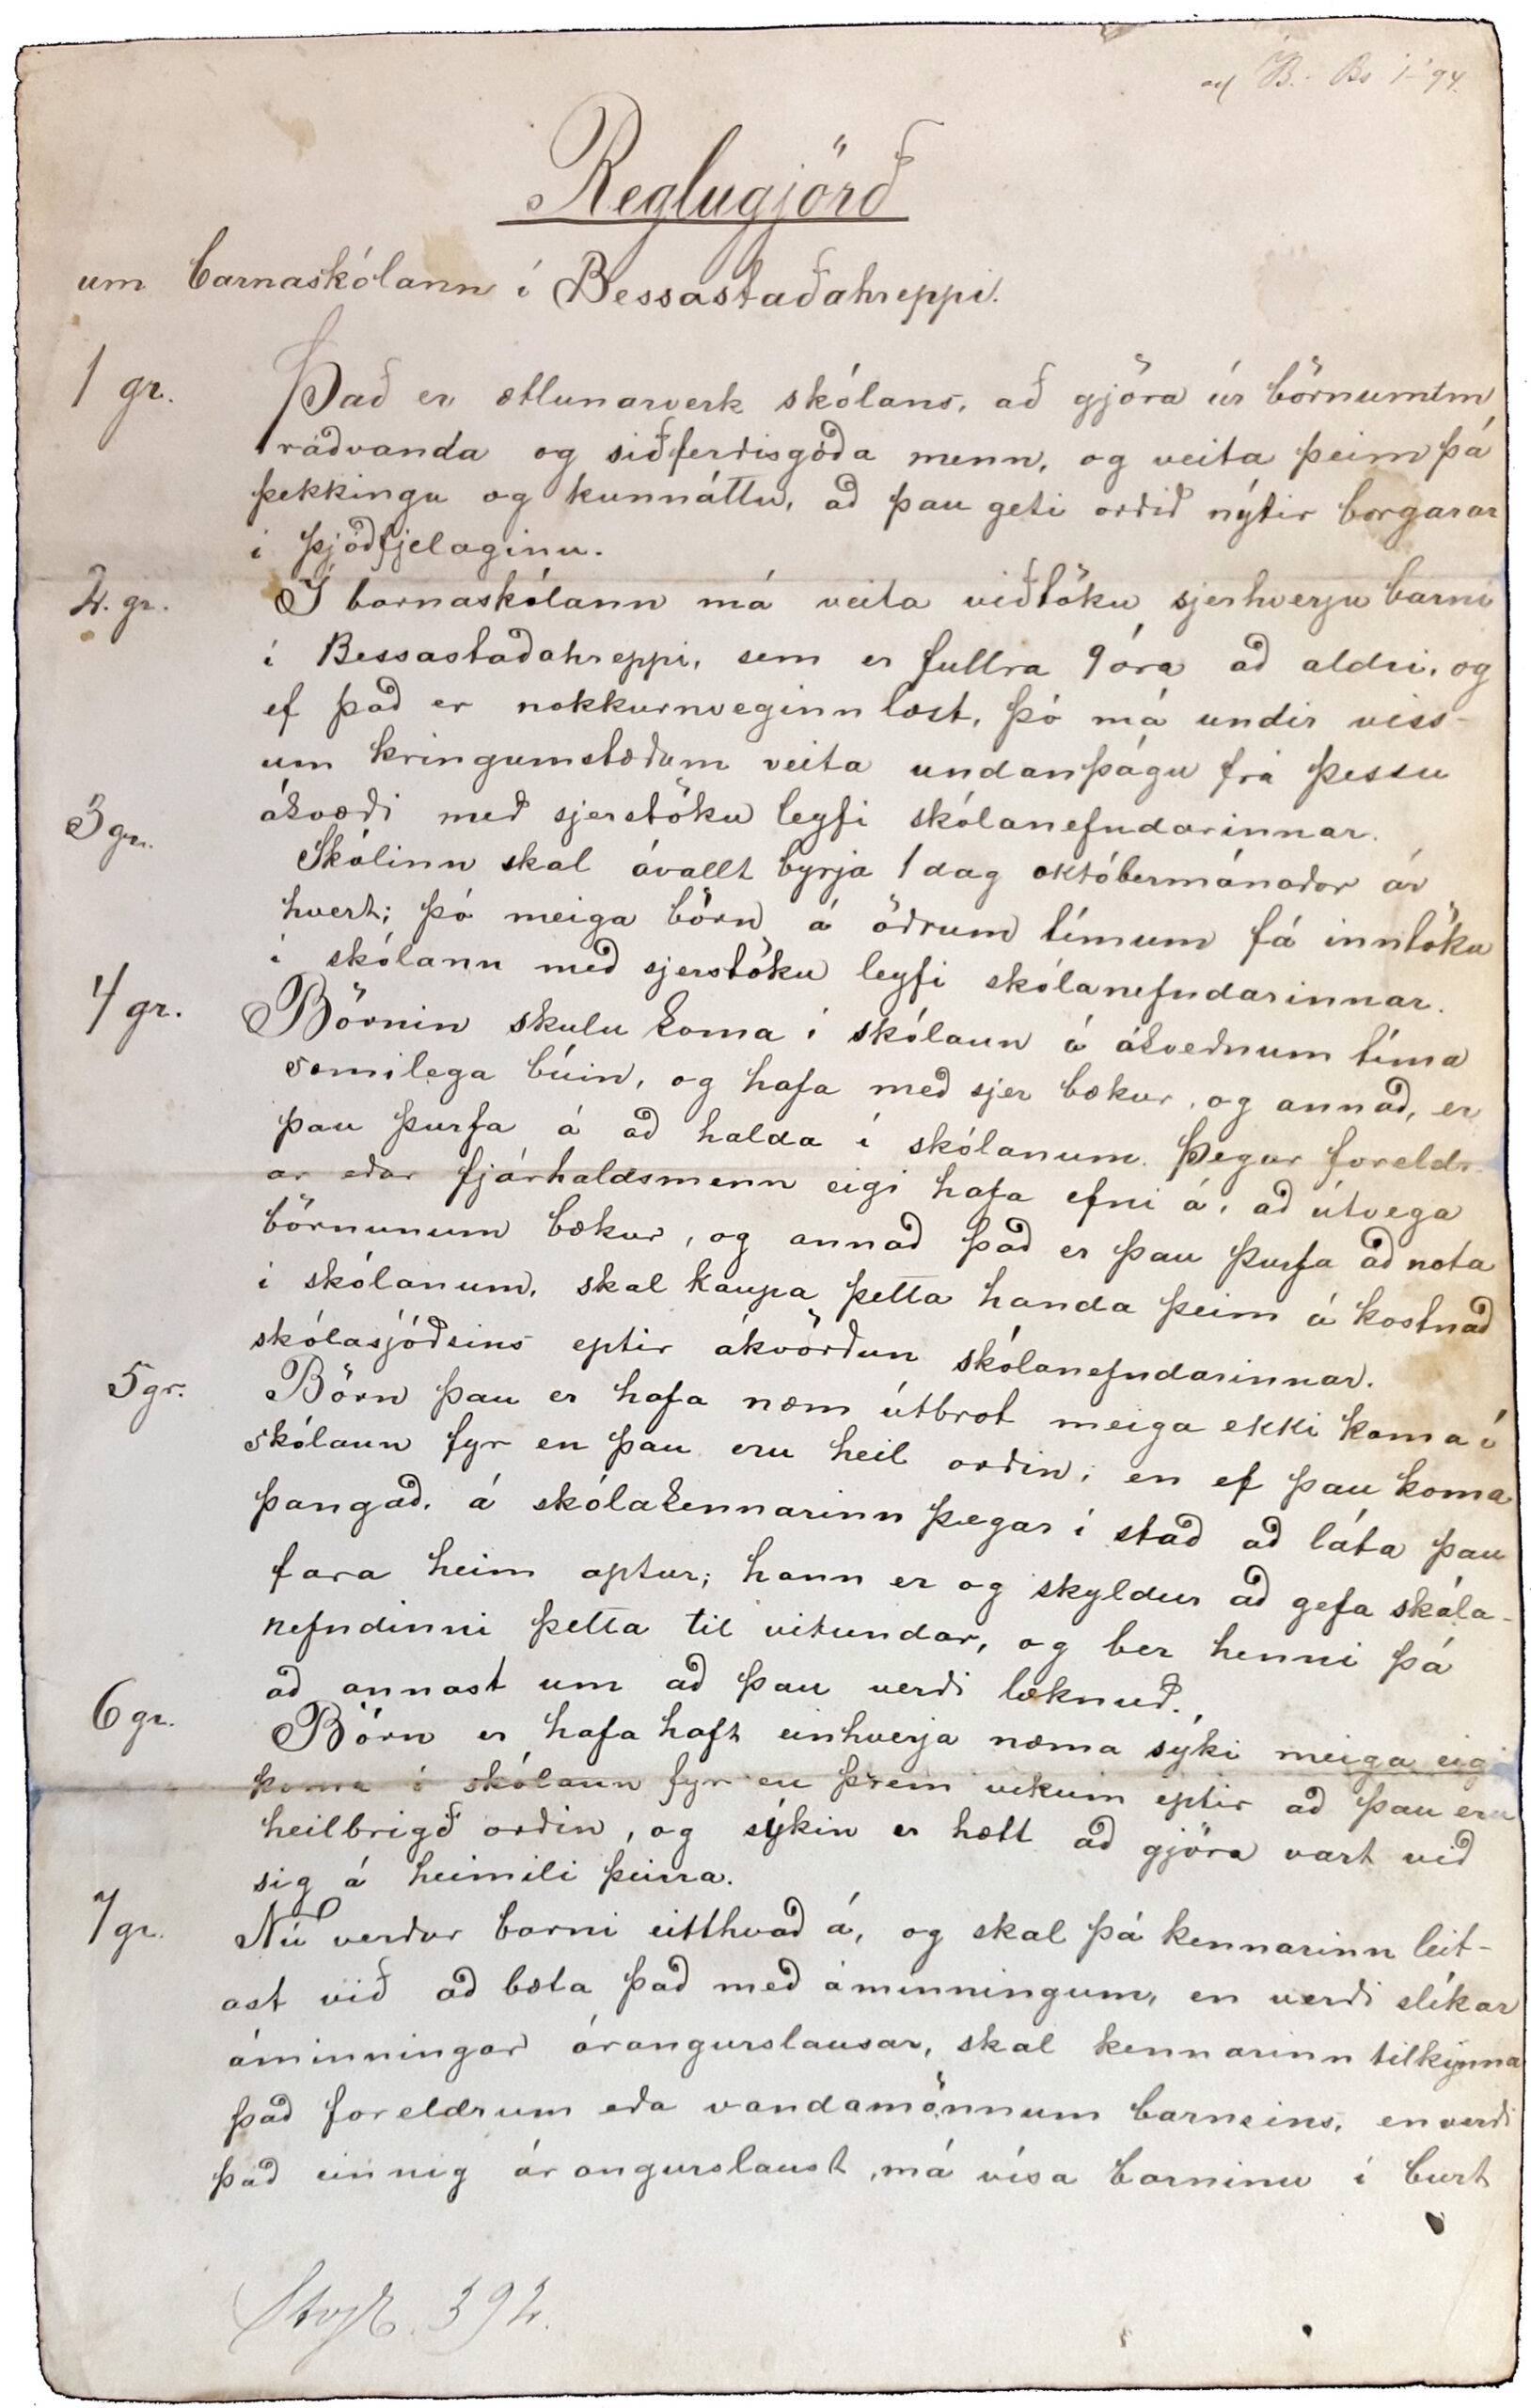 Reglugjörð
um barnaskólann í Bessastaðahreppi.
1 gr. Það er ætlunarverk skólans, að gjöra úr börnunum
ráðvanda og siðferðisgóða menn, og veita þeim þá
þekkingu og kunnáttu, að þau geti orðið nýtir borgarar
í þjóðfjelaginu.
2. gr. Í barnaskólann má veita viðtöku sjerhverju barni
í Bessastaðahreppi, sem er fullra 9 ára að aldri, og
ef það er nokkurnveginn læst, þó má undir viss-
um kringumstæðum veita undanþágu frá þessu
ákvæði með sjerstöku leyfi skólanefndarinnar.
3 gr. Skólinn skal ávallt byrja 1 dag októbermánaðar ár
hvert; þó meiga börn á öðrum tímum fá inntöku
í skólann með sjerstöku leyfi skólanefndarinnar.
4 gr. Börnin skulu koma í skólann á ákveðnum tíma
sæmilega búin, og hafa með sjer bækur, og annað, er
þau þurfa á að halda í skólanum. Þegar foreldr-
ar eðar fjárhaldsmenn eigi hafa efni á, að útvega
börnunum bækur, og annað það er þau þurfa að nota
í skólanum, skal kaupa þetta handa þeim á kostnað
skólasjóðsins eptir ákvörðun skólanefndarinnar.
5 gr. Börn þau er hafa næm útbrot meiga ekki koma í
skólann fyr en þau eru heil orðin; en ef þau koma
þangað, á skólakennarinn þegar í stað að láta þau
fara heim aptur; hann er og skyldur að gefa skóla-
nefndinni þetta til vitundar, og ber henni þá
að annast um að þau verði læknuð.
6 gr. Börn er hafa haft einhverja næma sýki meiga eigi
koma í skólann fyr en þrem vikum eptir að þau eru
heilbrigð orðin, og sýkin er hætt að gjöra vart við
sig á heimili þeirra.
7 gr. Nú verður barni eitthvað á, og skal þá kennarinn leit-
ast við að bæta það með áminningum, en verði slíkar
áminningar árangurslausar, skal kennarinn tilkynna
það foreldrum eða vandamönnum barnsins, en verði
það einnig árangurslaust, má vísa barninu í burt
392.